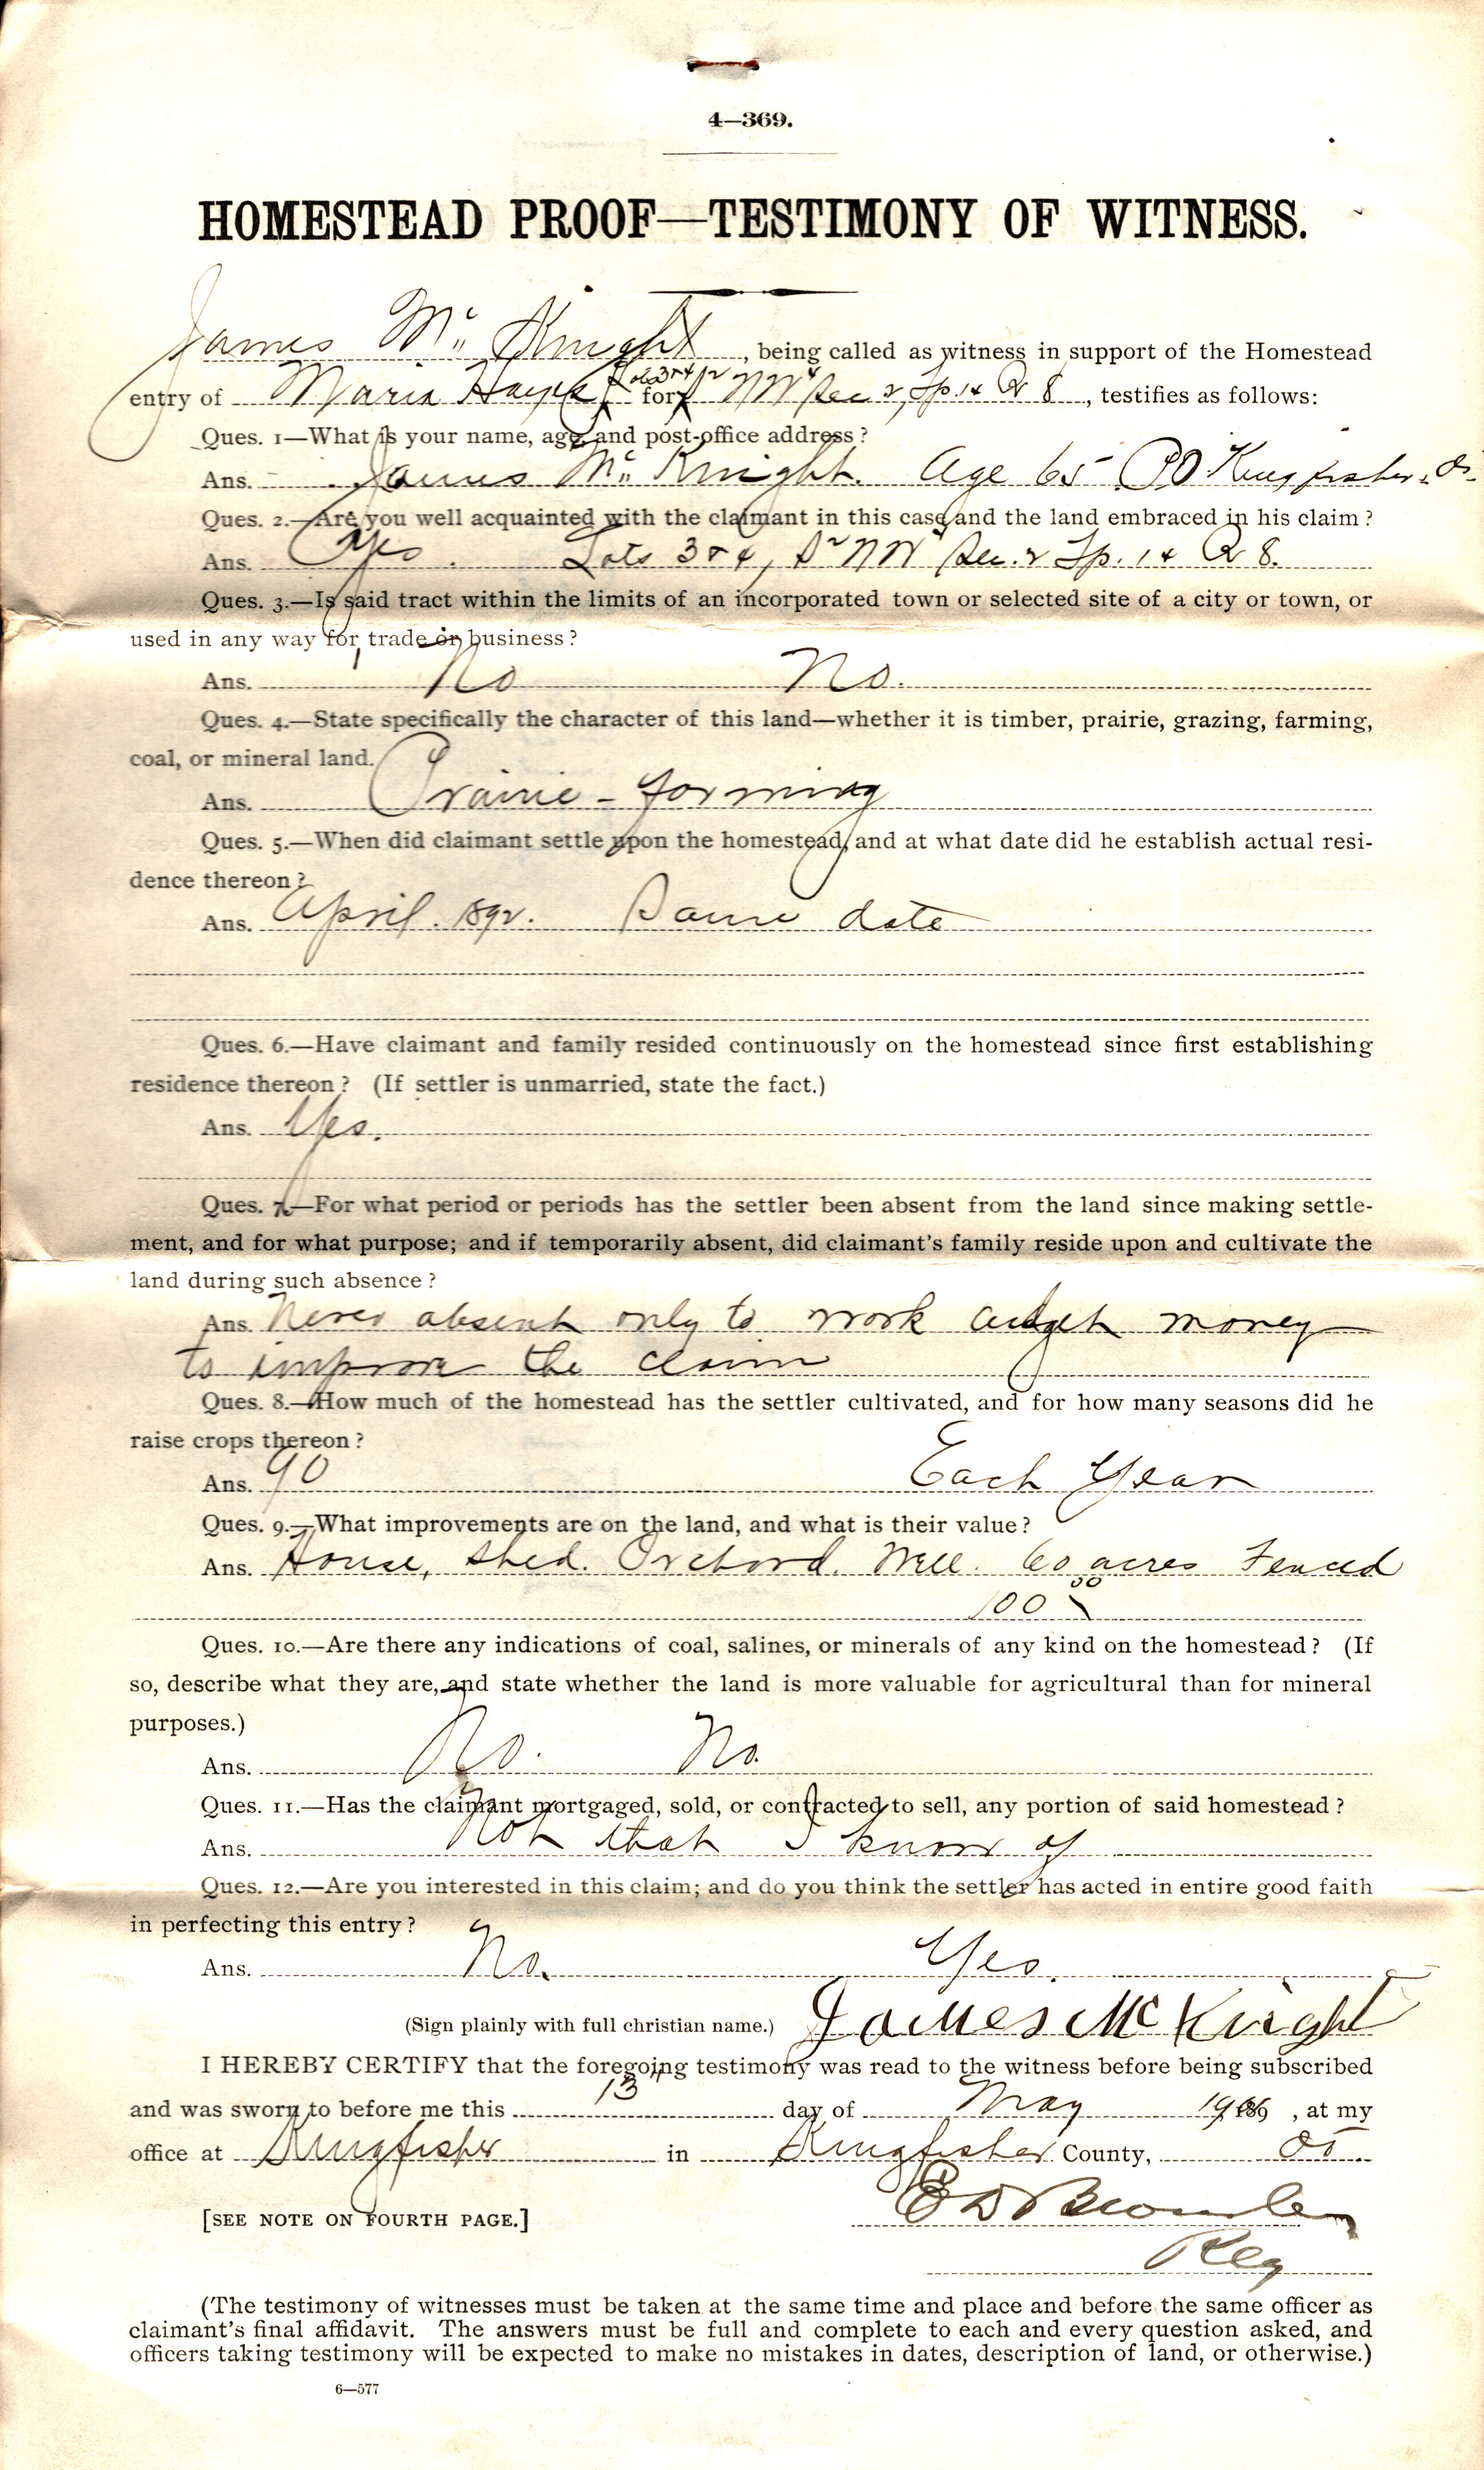 4—369.
HOMESTEAD PROOF—TESTIMONY OF WITNESS.
James Mc Knight, being called as witness in support of the Homestead
entry of Maria Hayes for Lots 3 & 4 S2 NW4 Sec 2, Tp. 14 R 8, testifies as follows:
Ques. 1—What is your name, age, and post-office address?
Ans. James Mc Knight. Age 65 PO Kingfisher,
Ques. 2.—Are you well acquainted with the claimant in this case, and the land embraced in his claim?
Ans. Yes. Lots 3 & 4, S2 NW4 Sec. 2 Tp. 14 R 8.
Ques. 3.—Is said tract within the limits of an incorporated town or selected site of a city or town, or
used in any way for trade or business?
Ans. No No.
Ques. 4.—State specifically the character of this land—whether it is timber, prairie, grazing, farming,
coal, or mineral land.
Ans. Prairie - farming
Ques. 5.—When did claimant settle upon the homestead, and at what date did he establish actual resi-
dence thereon?
Ans. April. 1892. Same date
Ques. 6.—Have claimant and family resided continuously on the homestead since first establishing
residence thereon? (If settler is unmarried, state the fact.)
Ans. Yes.
Ques. 7.—For what period or periods has the settler been absent from the land since making settle-
ment, and for what purpose; and if temporarily absent, did claimant's family reside upon and cultivate the
land during such absence?
Ans. Never absent only to work and get money
to improve the claim
Ques. 8.—How much of the homestead has the settler cultivated, and for how many seasons did he
raise crops thereon?
Ans. 90 Each Year
Ques. 9.—What improvements are on the land, and what is their value?
Ans. House, shed. Orchard. Well. 60 acres Fenced
100 00
Ques. 10.—Are there any indications of coal, salines, or minerals of any kind on the homestead? (If
so, describe what they are, and state whether the land is more valuable for agricultural than for mineral
purposes.)
Ans. No. No.
Ques. 11.—Has the claimant mortgaged, sold, or contracted to sell, any portion of said homestead?
Ans. Not that I know of
Ques. 12.—Are you interested in this claim; and do you think the settler has acted in entire good faith
in perfecting this entry?
Ans. No. Yes.
(Sign plainly with full christian name.) James Mc Knight
I HEREBY CERTIFY that the foregoing testimony was read to the witness before being subscribed
and was sworn to before me this 13" day of May , at my
office at Kingfisher in Kingfisher County,
[SEE NOTE ON FOURTH PAGE.]
Reg
(The testimony of witnesses must be taken at the same time and place and before the same officer as
claimant's final affidavit. The answers must be full and complete to each and every question asked, and
officers taking testimony will be expected to make no mistakes in dates, description of land, or otherwise.)
6—577